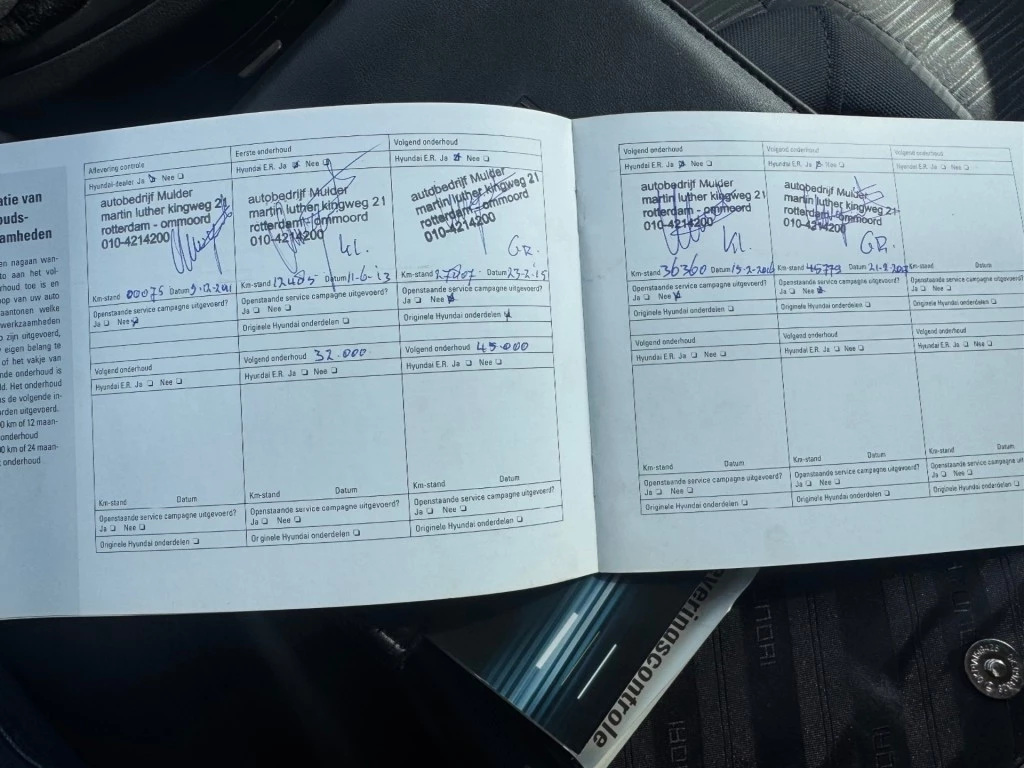 atie van
ouds-
amheden
en nagaan wan-
to aan het vol-
rhoud toe is en
oop van uw auto
aantonen welke
werkzaamheden
zijn uitgevoerd,
eigen belang te
of het vakje van
nde onderhoud is
ld. Het onderhoud
s de volgende in-
rden uitgevoerd.
0 km of 12 maan-
onderhoud
00 km of 24 maan-
onderhoud
Aflevering controle
Hyundai-dealer Ja Nee
autobedrijf Mulder
martin luther kingweg 21
rotterdam - ommoord
010-4214200
Km-stand 00075 Datum
Openstaande service campagne uitgevoerd?
Ja Nee
Volgend onderhoud
Hyundai E.R. Ja Nee
Km-stand Datum
Openstaande service campagne uitgevoerd?
Ja Nee
Originele Hyundai onderdelen
Eerste onderhoud
Hyundai E.R. Ja Nee
autobedrijf Mulder
martin luther kingweg 21
rotterdam - ommoord
010-4214200
Kl.
Km-stand 12485 Datum 11-6-13
Openstaande service campagne uitgevoerd?
Ja Nee
Originele Hyundai onderdelen
Volgend onderhoud 32.000
Hyundai E.R. Ja Nee
Km-stand Datum
Openstaande service campagne uitgevoerd?
Ja Nee
Originele Hyundai onderdelen
Volgend onderhoud
Hyundai E.R. Ja Nee
autobedrijf Mulder
martin luther kingweg 21
rotterdam - ommoord
010-4214200
GR.
Km-stand Datum 23-2-15
Openstaande service campagne uitgevoerd?
Ja Nee
Originele Hyundai onderdelen
Volgend onderhoud 45.000
Hyundai E.R. Ja Nee
Km-stand Datum
Openstaande service campagne uitgevoerd?
Ja Nee
Originele Hyundai onderdelen
Volgend onderhoud
Hyundai E.R. Ja Nee
autobedrijf Mulder
martin luther kingweg 21
rotterdam - ommoord
010-4214200
Kl.
Km-stand 36360 Datum
Openstaande service campagne uitgevoerd?
Ja Nee
Originele Hyundai onderdelen
Volgend onderhoud
Hyundai E.R. Ja Nee
Km-stand Datum
Openstaande service campagne uitgevoerd?
Ja Nee
Originele Hyundai onderdelen
Volgend onderhoud
Hyundai E.R. Ja Nee
autobedrijf Mulder
martin luther kingweg 21
rotterdam - ommoord
010-4214200
GR.
Km-stand 45779 Datum
Openstaande service campagne uitgevoerd?
Ja Nee
Originele Hyundai onderdelen
Volgend onderhoud
Hyundai E.R. Ja Nee
Km-stand Datum
Openstaande service campagne uitgevoerd?
Ja Nee
Originele Hyundai onderdelen
Volgend onderhoud
Hyundai E.R. Ja Nee
Km-stand Datum
Openstaande service campagne uit
Ja Nee
Originele Hyundai onderdelen
Volgend onderhoud
Hyundai E.R. Ja Nee
Km-stand Datum
Openstaande service campagne uit
Ja Nee
Originele Hyundai onderdelen
everingscontrole